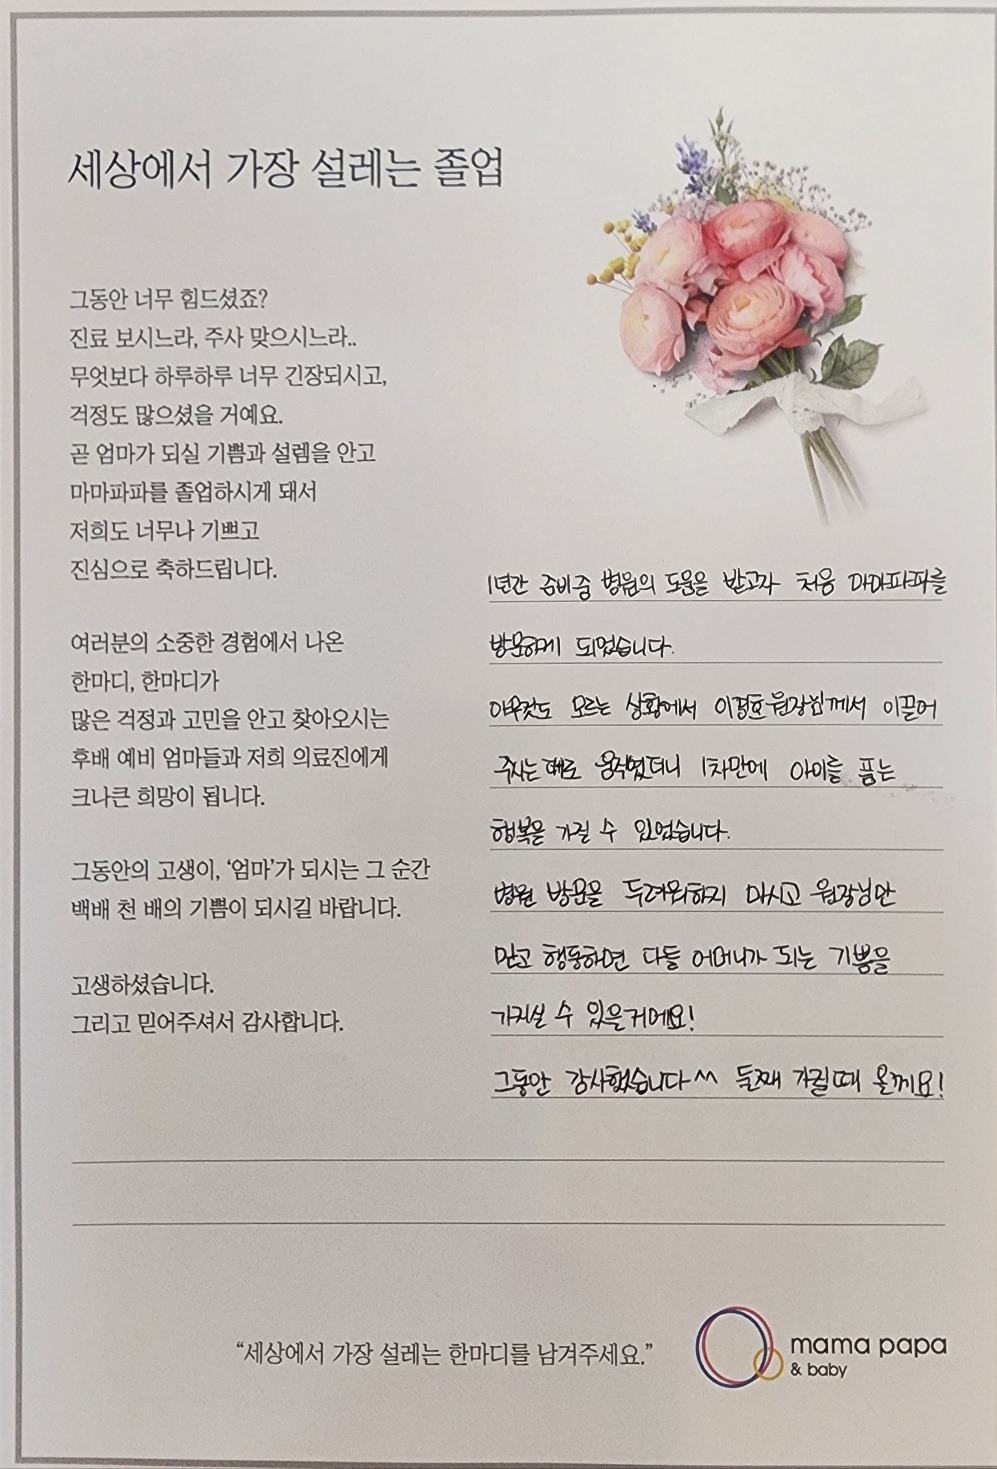 세상에서 가장 설레는 졸업
그동안 너무 힘드셨죠?
진료 보시느라, 주사 맞으시느라..
무엇보다 하루하루 너무 긴장되시고,
걱정도 많으셨을 거예요.
곧 엄마가 되실 기쁨과 설렘을 안고
마마파파를 졸업하시게 돼서
저희도 너무나 기쁘고
진심으로 축하드립니다.
여러분의 소중한 경험에서 나온
한마디, 한마디가
많은 걱정과 고민을 안고 찾아오시는
후배 예비 엄마들과 저희 의료진에게
크나큰 희망이 됩니다.
그동안의 고생이, ‘엄마’가 되시는 그 순간
백배 천 배의 기쁨이 되시길 바랍니다.
고생하셨습니다.
그리고 믿어주셔서 감사합니다.
1년간 준비중 병원의 도움을 받고자 처음 마마파파를
방문하게 되었습니다.
아무것도 모르는 상황에서 이경호원장님께서 이끌어
주시는 때로 움직였더니 1차만에 아이를 품는
행복을 가질 수 있었습니다.
병원 방문을 두려워하지 마시고 원장님만
믿고 행동하면 다들 어머니가 되는 기쁨을
가지실 수 있을거에요!
그동안 감사했습니다^^ 둘째 가질때 올게요!
“세상에서 가장 설레는 한마디를 남겨주세요.”
mama papa
& baby